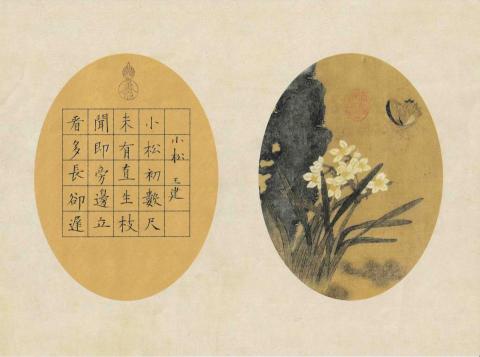 小松 王建
小松初數尺
未有直生枝
聞即旁邊立
看多長卻遲